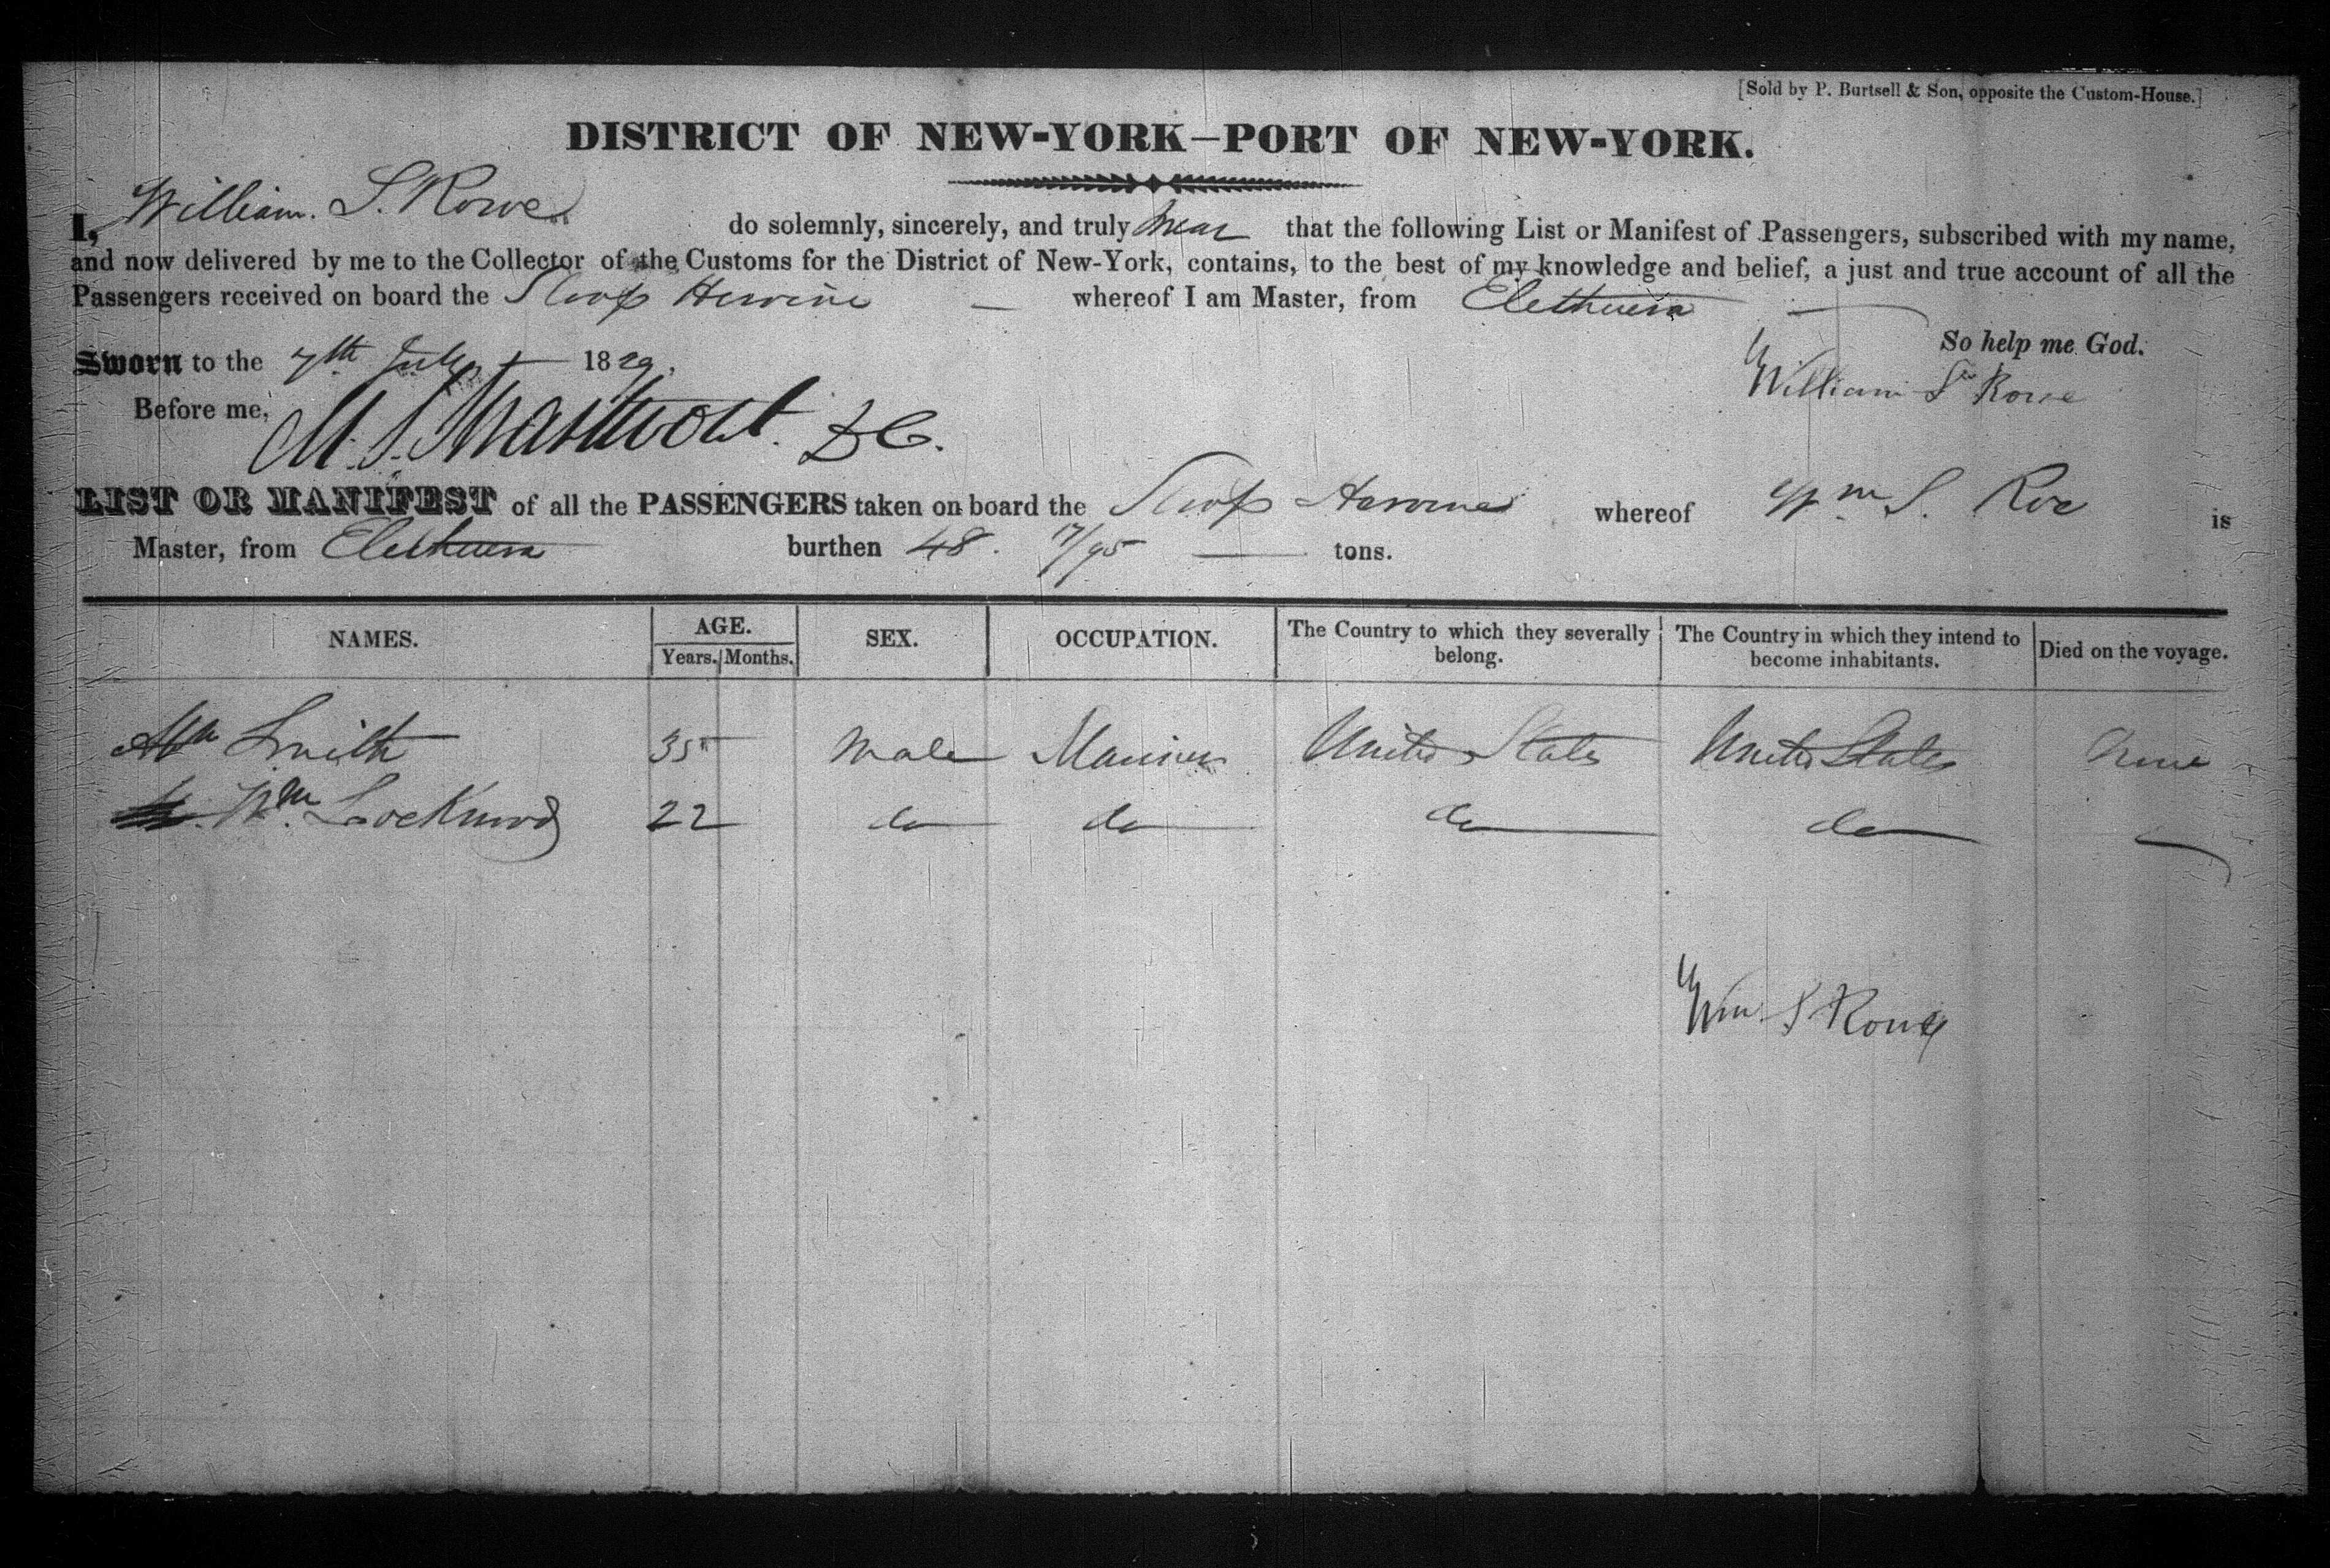 [Sold by P. Burtsell & Son, opposite the Custom-House.]
DISTRICT OF NEW-YORK—PORT OF NEW-YORK.
I, William. S. Rowe do solemnly, sincerely, and truly swear that the following List or Manifest of Passengers, subscribed with my name,
and now delivered by me to the Collector of the Customs for the District of New-York, contains, to the best of my knowledge and belief, a just and true account of all the
Passengers received on board the Sloop whereof I am Master, from Eletheura
So help me God.
Sworn to the 7th July 1829.
William S Rowe
Before me, M. S. Swartwout. D C.
LIST OR MANIFEST of all the PASSENGERS taken on board the Sloop whereof Wm S. Roe is
Master, from Eletheura burthen 48. 17/95 tons.
NAMES. AGE. SEX. OCCUPATION. The Country to which they severally belong. The Country in which they intend to become inhabitants. Died on the voyage.
Years. Months.
Smith 35 Male Mariner United States United States None
Wm. Lockwood 22 do do do do
Wm S Rowe